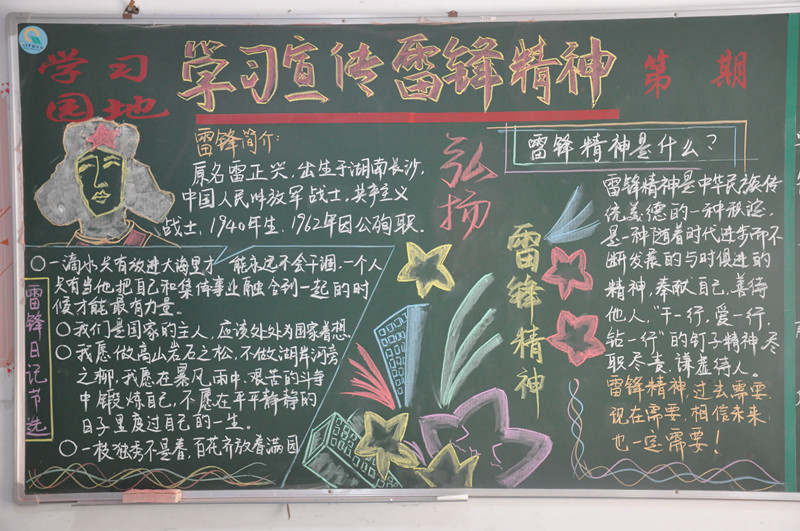 学习
园地
学习宣传雷锋精神
第 期
雷锋简介:
原名雷正兴,出生于湖南长沙,
中国人民解放军战士,共产主义
战士,1940年生,1962年因公殉职.
弘扬
雷锋精神
雷锋日记节选
○一滴水只有放进大海里才能永远不会干涸.一个人
只有当他把自己和集体事业融合到一起的时
候才能最有力量。
○我们是国家的主人,应该处处为国家着想
○我愿做高山岩石之松,不做湖岸河旁
之柳.我愿在暴风雨中.艰苦的斗争
中锻炼自己,不愿在平平静静的
日子里度过自己的一生。
○一枝独秀不是春,百花齐放春满园
雷锋精神是什么?
雷锋精神是中华民族传
统美德的一种积淀,
是一种随着时代进步而不
断发展的与时俱进的
精神,奉献自己,善待
他人,"干一行,爱一行,
钻一行"的钉子精神,尽
职尽责,谦虚待人。
雷锋精神,过去需要,
现在需要,相信未来,
也一定需要!